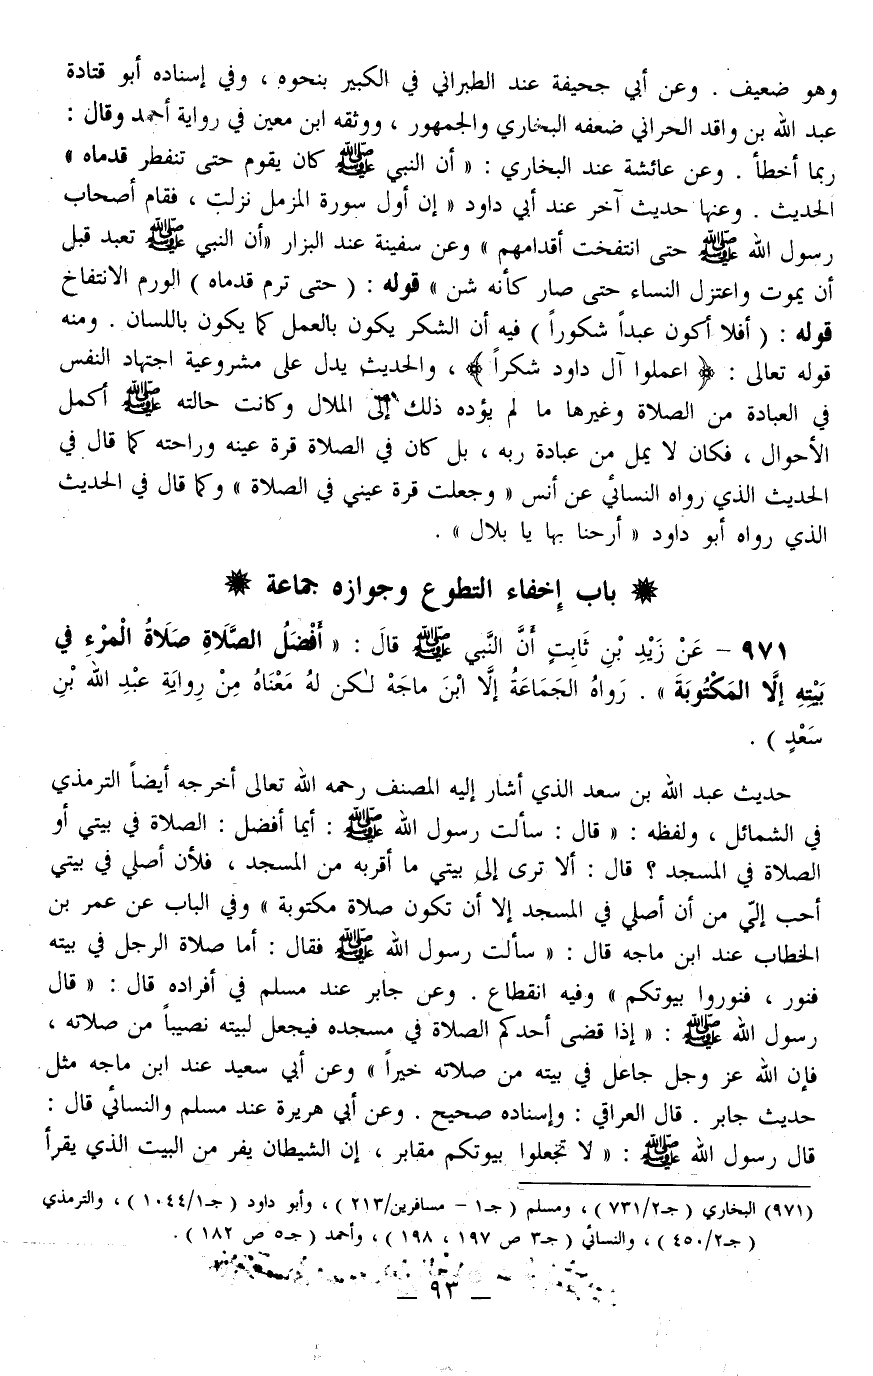 وهو ضعيف . وعن أبي جحيفة عند الطبراني في الكبير بنحوه ، وفي إسناده أبو قتادة
عبد الله بن واقد الحراني ضعفه البخاري والجمهور ، ووثقه ابن معين في رواية أحمد وقال :
ربما أخطأ . وعن عائشة عند البخاري : « أن النبي ﷺ كان يقوم حتى تنفطر قدماه »
الحديث . وعنها حديث آخر عند أبي داود « إن أول سورة المزمل نزلت ، فقام أصحاب
رسول الله ﷺ حتى انتفخت أقدامهم » وعن سفينة عند البزار «أن النبي ﷺ تعبد قبل
أن يموت واعتزل النساء حتى صار كأنه شن » قوله : ( حتى ترم قدماه ) الورم الانتفاخ
قوله : ( أفلا أكون عبداً شكوراً ) فيه أن الشكر يكون بالعمل كما يكون باللسان . ومنه
قوله تعالى : ﴿ اعملوا آل داود شكراً ﴾ ، والحديث يدل على مشروعية اجتهاد النفس
في العبادة من الصلاة وغيرها ما لم يؤده ذلك إلى الملال وكانت حالته ﷺ أكمل
الأحوال ، فكان لا يمل من عبادة ربه ، بل كان في الصلاة قرة عينه وراحته كما قال في
الحديث الذي رواه النسائي عن أنس « وجعلت قرة عيني في الصلاة » وكما قال في الحديث
الذي رواه أبو داود « أرحنا بها يا بلال » .
باب إخفاء التطوع وجوازه جماعة
٩٧١ – عَنْ زَيْدِ بْنِ ثَابِتٍ أَنَّ النَّبي ﷺ قالَ : « أَفْضَلُ الصَّلَاةِ صَلَاةُ الْمَرْءِ في
بَيْتِهِ إلَّا المَكْتُوبَةَ » . رَواهُ الجَمَاعَةُ إلَّا ابْنَ ماجَهْ لَـٰكن لهُ مَعْنَاهُ مِنْ رِوايَةِ عبْدِ الله بْنِ
سَعْدٍ ) .
حديث عبد الله بن سعد الذي أشار إليه المصنف رحمه الله تعالى أخرجه أيضاً الترمذي
في الشمائل ، ولفظه : « قال : سألت رسول الله ﷺ : أيما أفضل : الصلاة في بيتي أو
الصلاة في المسجد ؟ قال : ألا ترى إلى بيتي ما أقربه من المسجد ، فلأن أصلي في بيتي
أحب إليّ من أن أصلي في المسجد إلا أن تكون صلاة مكتوبة » وفي الباب عن عمر بن
الخطاب عند ابن ماجه قال : « سألت رسول الله ﷺ فقال : أما صلاة الرجل في بيته
فنور ، فنوروا بيوتكم » وفيه انقطاع . وعن جابر عند مسلم في أفراده قال : « قال
رسول الله ﷺ : « إذا قضى أحدكم الصلاة في مسجده فيجعل لبيته نصيباً من صلاته ،
فإن الله عز وجل جاعل في بيته من صلاته خيراً » وعن أبي سعيد عند ابن ماجه مثل
حديث جابر . قال العراقي : وإسناده صحيح . وعن أبي هريرة عند مسلم والنسائي قال :
قال رسول الله ﷺ : « لا تجعلوا بيوتكم مقابر ، إن الشيطان يفر من البيت الذي يقرأ
(٩٧١) البخاري ( جـ٢/ ٧٣١ ) ، ومسلم ( جـ١ – مسافرين/٢١٣ ) ، وأبو داود ( جـ١/ ١٠٤٤ ) ، والترمذي
( جـ٢/ ٤٥٠ ) ، والنسائي ( جـ٣ ص ١٩٧ ، ١٩٨ ) ، وأحمد ( جـ٥ ص ١٨٢ ) .
– ٩٣ –